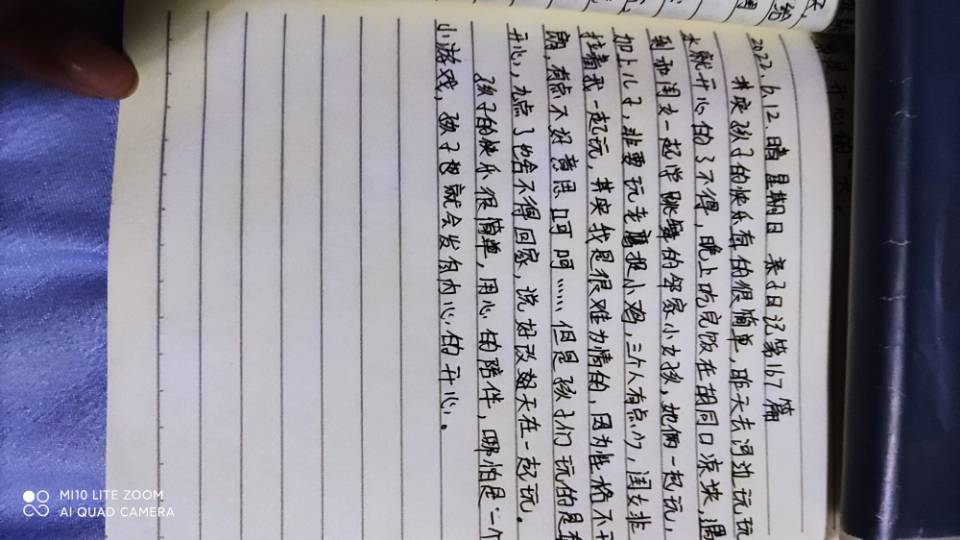 2022.6.12.晴 星期日 亲子日记第167篇
其实孩子的快乐真的很简单,昨天去河边玩玩
水就开心的了不得,晚上吃完饭在胡同口凉快,遇
到和闺女一起学跳舞的邻家小女孩,她俩一起玩,
加上儿子,非要玩老鹰捉小鸡,三个人有点少,闺女非
拉着我一起玩,其实我是很难为情的,因为性格不开
朗,有点不好意思呵呵……但是孩子们玩的是真
开心,九点了也舍不得回家,说好改天在一起玩。
孩子的快乐很简单,用心的陪伴,哪怕是一个
小游戏,孩子也就会发自内心的开心。
MI 10 LITE ZOOM
AI QUAD CAMERA